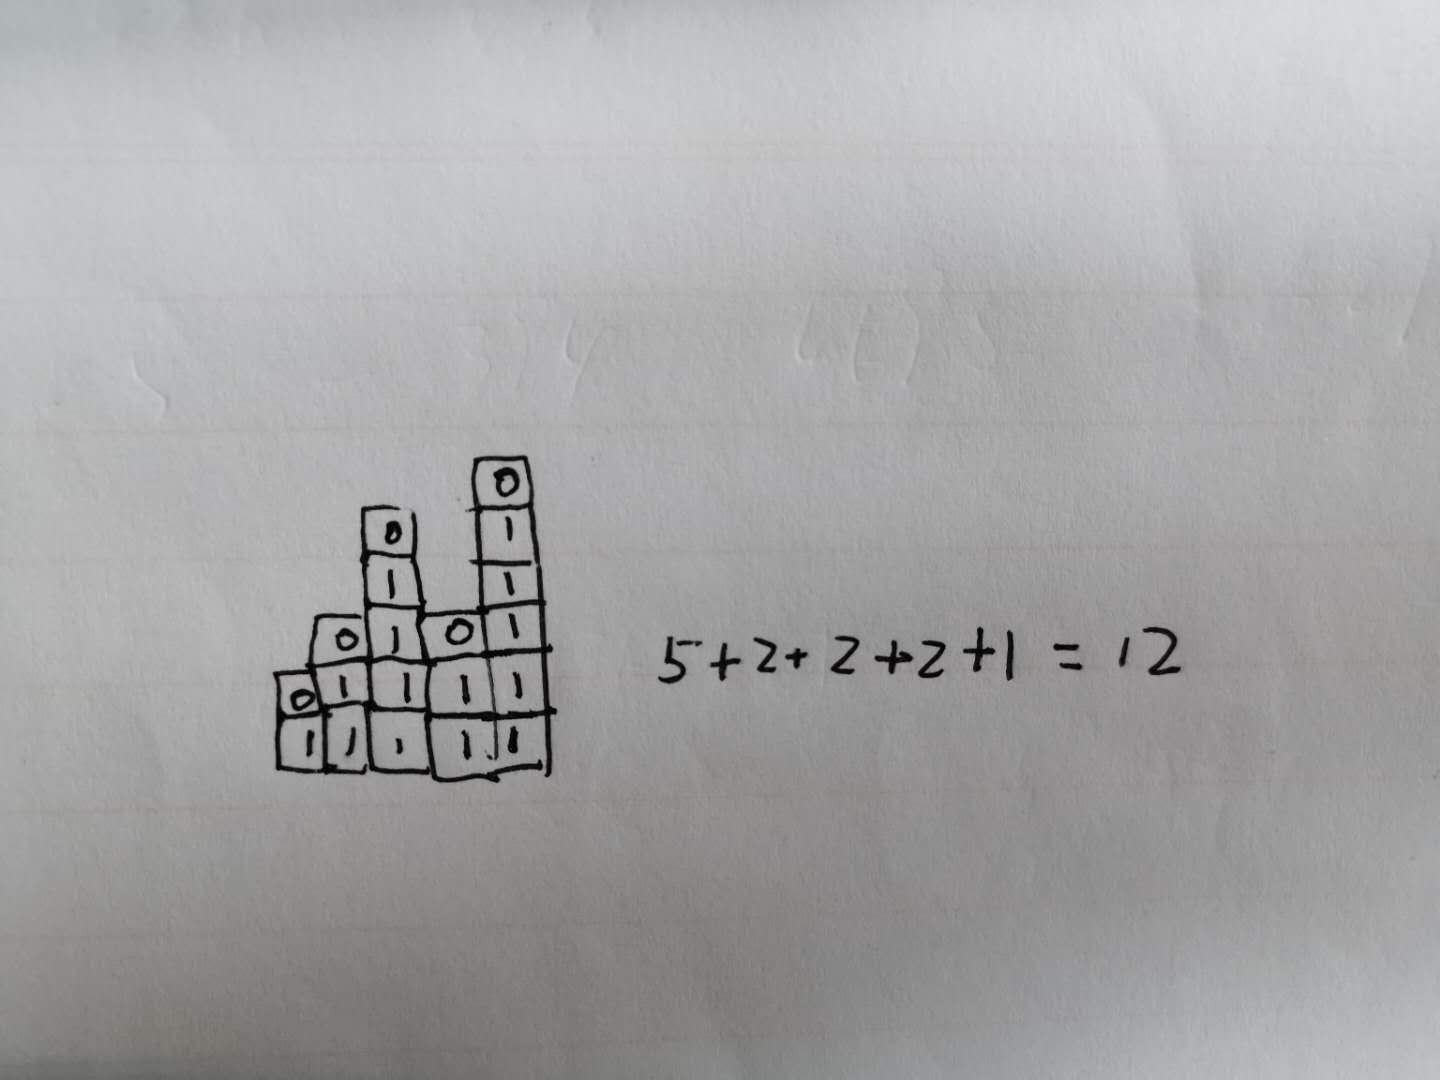 0
0 1
1 1
0 1 0 1
0 1 1 1 1
1 1 1 1 1
5+2+2+2+1 = 12